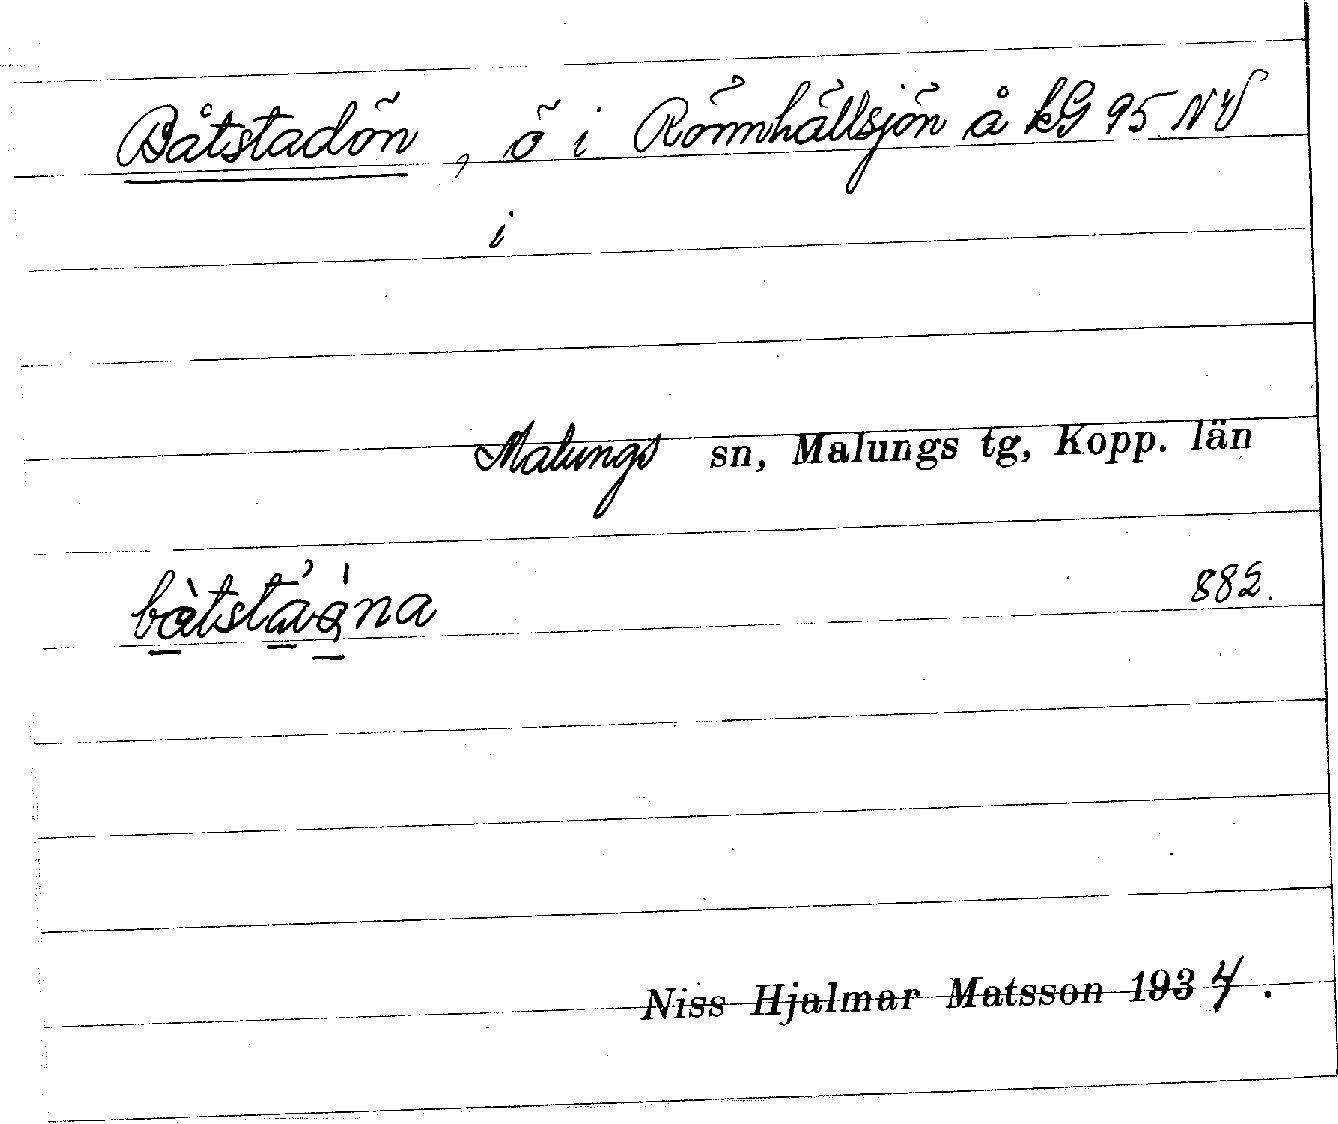 Båtstadön, ö i Rönnhällsjön å kG 95 NV
i
Malungs sn, Malungs tg, Kopp. län
882.
Niss Hjalmar Matsson 1934.